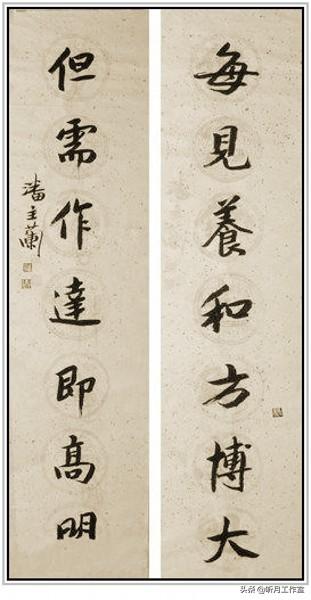 每見養和方博大
但需作達即高明
潘主蘭
头条@昕月工作室